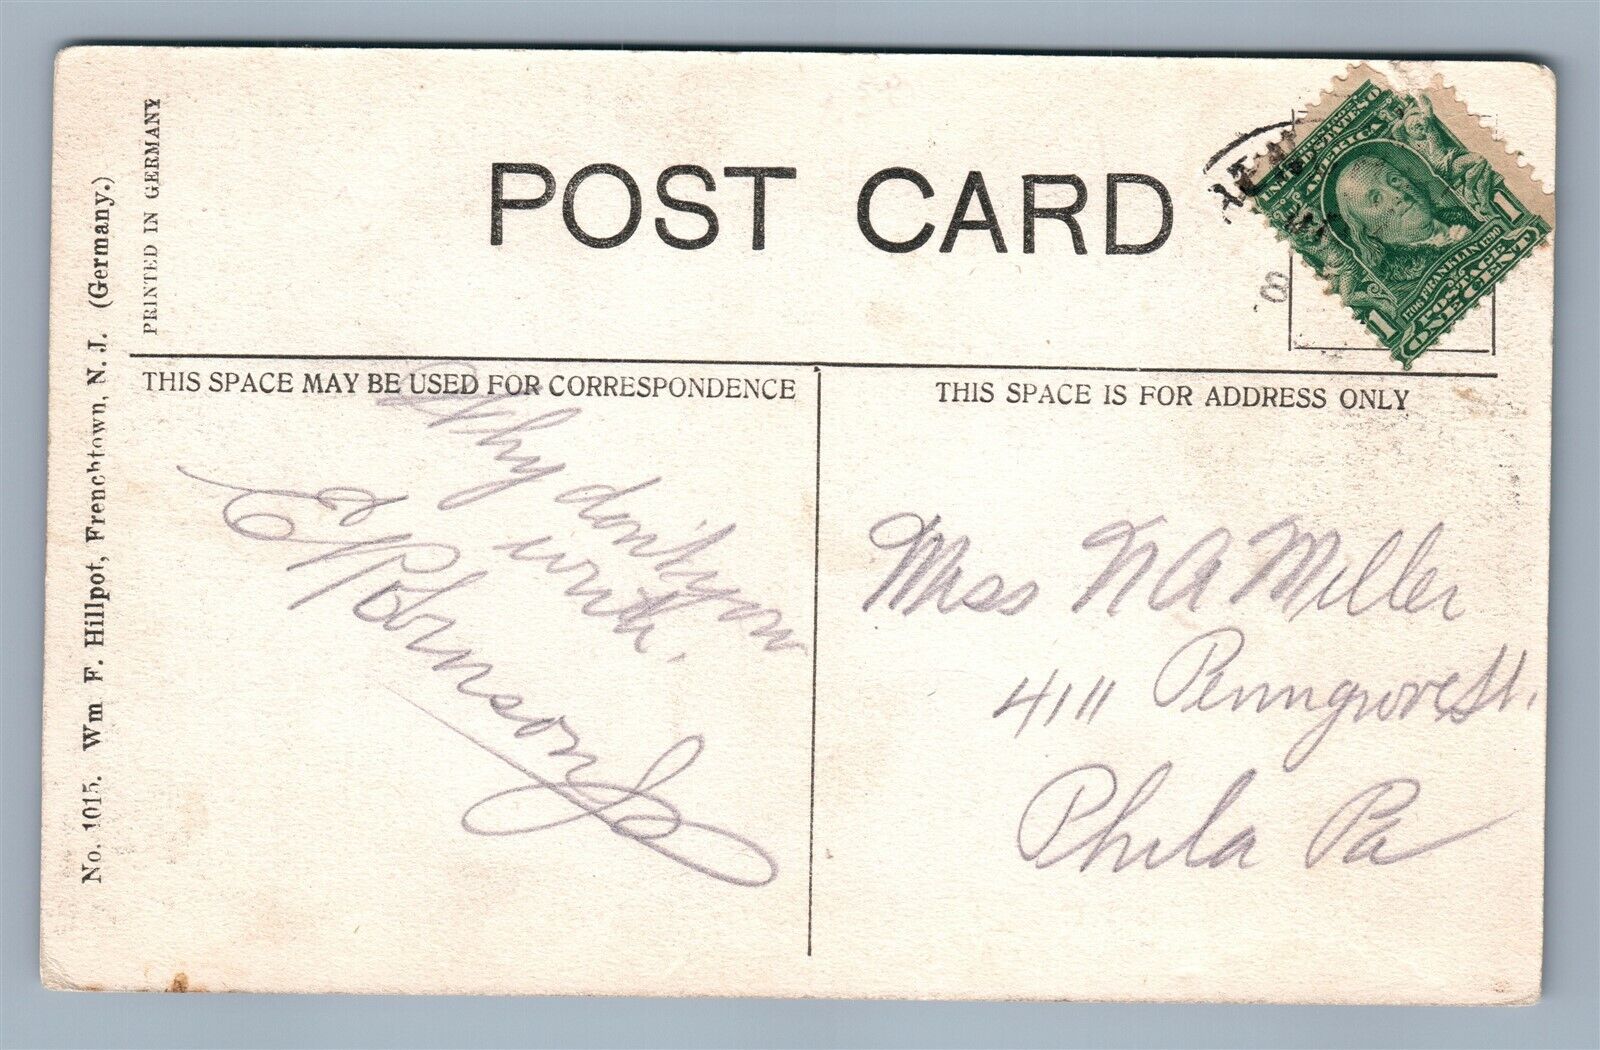 POST CARD
PRINTED IN GERMANY
No. 1015. Wm F. Hillpot, Frenchtown, N. J. (Germany.)
UNITED STATES OF
AMERICA
1706 FRANKLIN 1790
POSTAGE
1 ONE CENT 1
8
THIS SPACE MAY BE USED FOR CORRESPONDENCE
Why don't you
write.
E Robinson
THIS SPACE IS FOR ADDRESS ONLY
Miss N A Miller
4111 Penngrove St.
Phila Pa